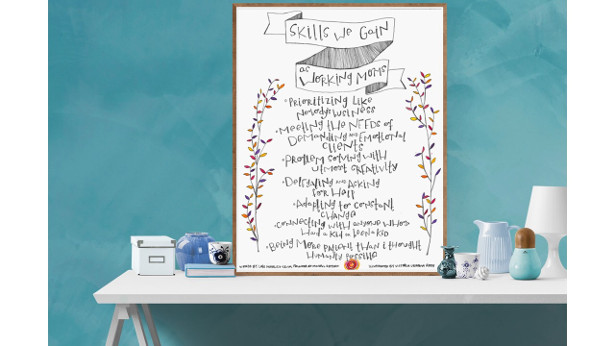 Skills We Gain
as Working Moms
• Prioritizing Like
Nobody's Business
• Meeting the Needs of
Demanding and Emotional
Clients
• Problem Solving with
Utmost Creativity
• Delegating and Asking
for Help
• Adapting to Constant
Change
• Connecting with Anyone Who's
Had a Kid or Been a Kid
• Being More Patient Than I Thought
Humanly Possible
Words by: Founder of Mindful Return Illustrated by